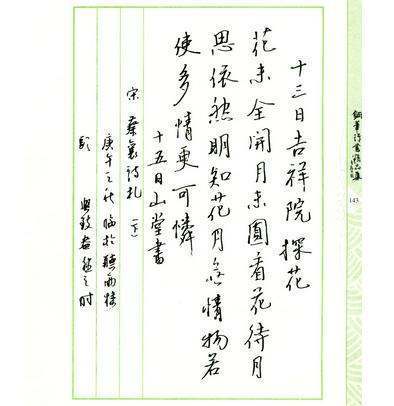 十三日吉祥院探花
花未全開月未圓看花待月
思依然明知花月無情物若
使多情更可憐
十五日山堂書
宋 蔡襄詩札
庚午之秋臨於聽雨樓
興致盎然之時
143